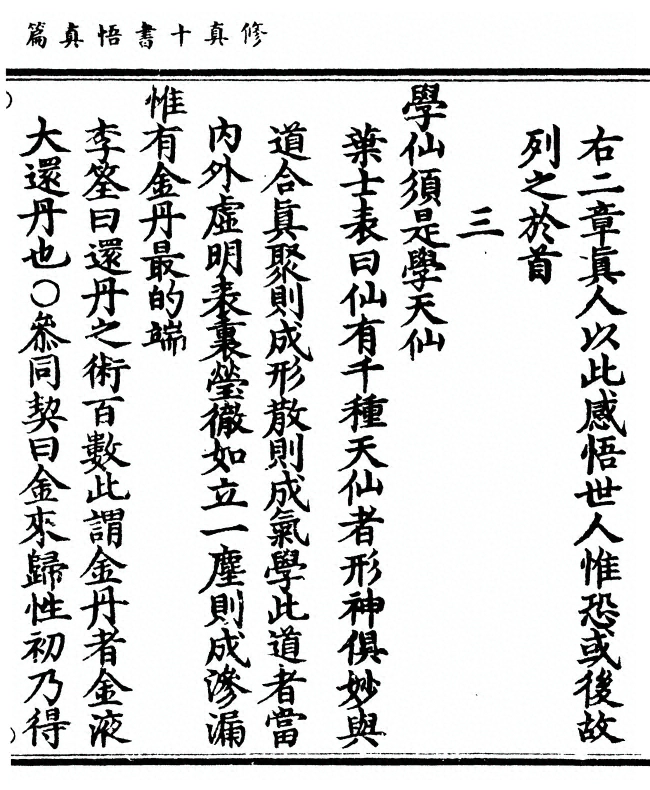 修真十書悟真篇
右二章真人以此感悟世人惟恐或後故
列之於首
三
學仙須是學天仙
葉士表曰仙有千種天仙者形神俱妙與
道合眞聚則成形散則成氣學此道者當
內外虛明表裏瑩徹如立一塵則成滲漏
惟有金丹最的端
李筌曰還丹之術百數此謂金丹者金液
大還丹也〇叅同契曰金來歸性初乃得